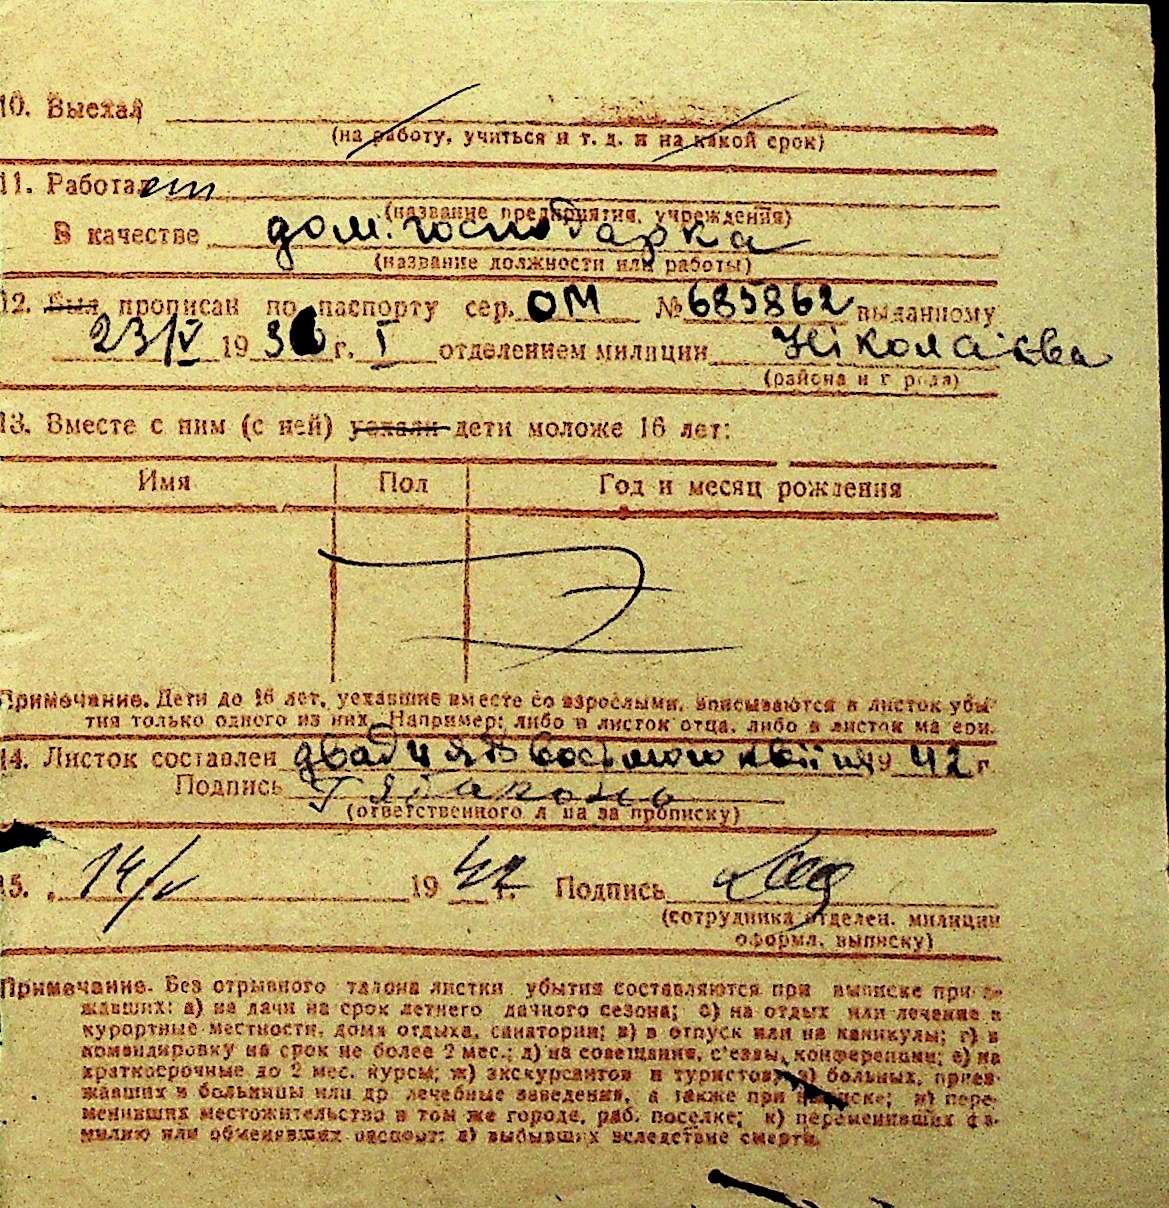 10. Выехал
(на работу, учиться и т. д. и на какой срок)
11. Работает
(название предприятия, учреждения)
В качестве дом. господарка
(название должности или работы)
12. Был прописан по паспорту сер. ОМ № 685862 выданному
23/V 1936 г. I отделением милиции Ніколаєва
(района и города)
13. Вместе с ним (с ней) уехали дети моложе 16 лет:
Имя Пол Год и месяц рождения
Примечание. Дети до 16 лет, уехавшие вместе со взрослыми, вписываются в листок убы-
тия только одного из них. Например: либо в листок отца, либо в листок ма ери.
14. Листок составлен 19 42 г.
Подпись
(ответственного л ца за прописку)
15. 14/V 19 42 г. Подпись
(сотрудника отделен. милиции
оформл. выписку)
Примечание. Без отрывного талона листки убытия составляются при выписке приез-
жавших: а) на дачи на срок летнего дачного сезона; б) на отдых или лечение в
курортные местности, дома отдыха, санатории; в) в отпуск или на каникулы; г) в
командировку на срок не более 2 мес.; д) на совещания, с'езды, конференции; е) на
краткосрочные до 2 мес. курсы; ж) экскурсантов и туристов; з) больных, приез-
жавших в больницы или др лечебные заведения, а также при выписке; и) пере-
менивших местожительство в том же городе, раб. поселке; к) переменивших фа-
милию или обменявших паспорт; л) выбывших вследствие смерти.